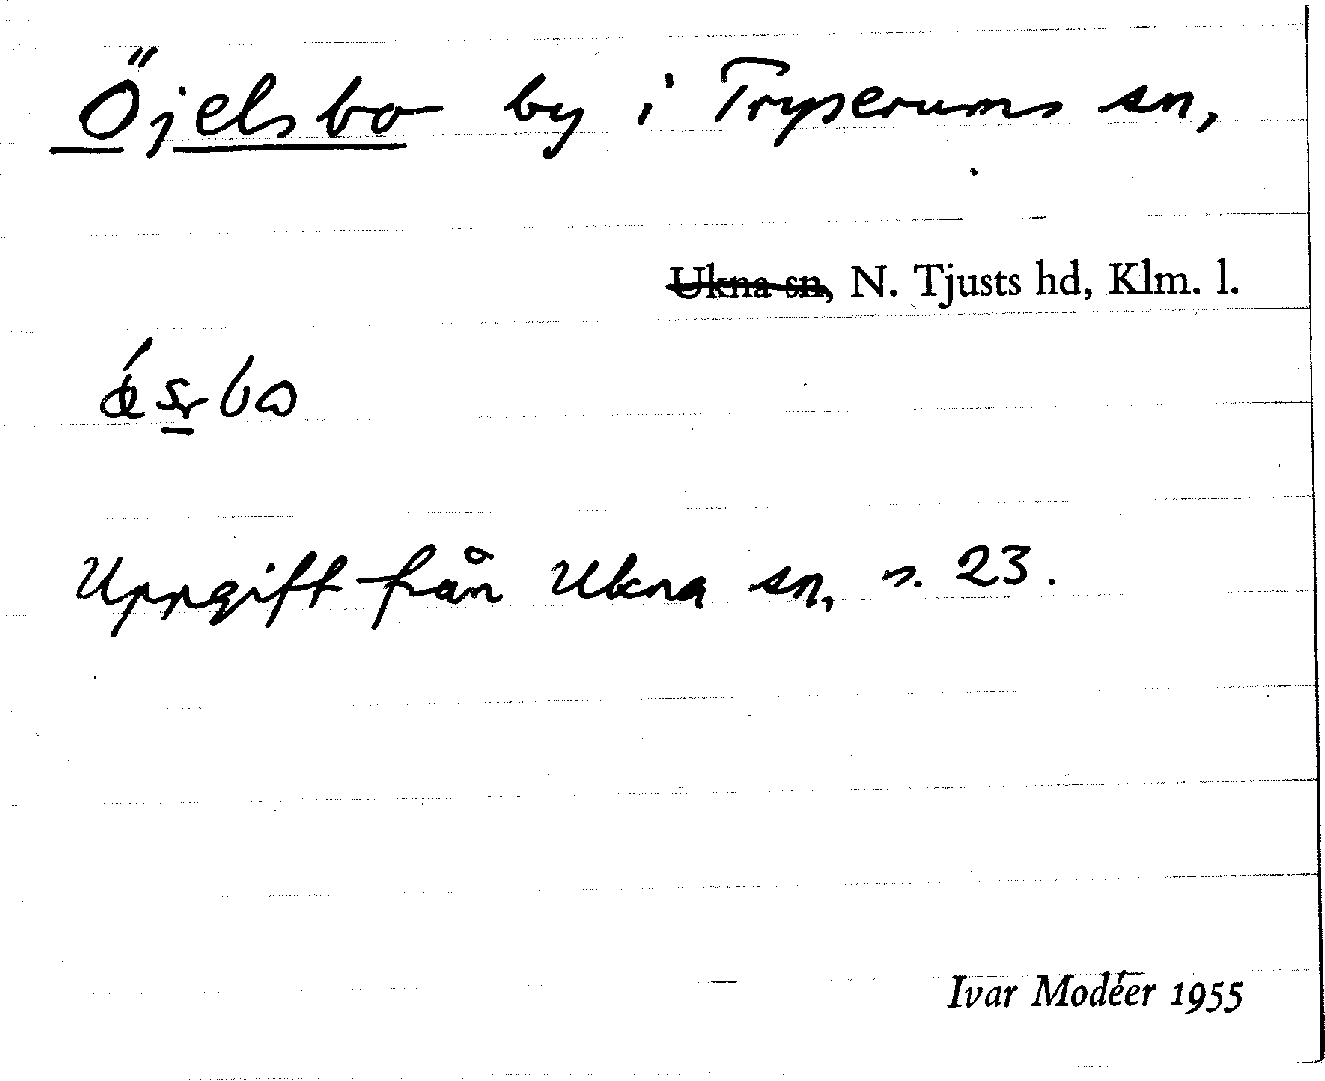 Öjelsbo by i Tryserums sn,
~~Ukna sn,~~ N. Tjusts hd, Klm. l.
Uppgift från Ukna sn, s. 23.
Ivar Modéer 1955